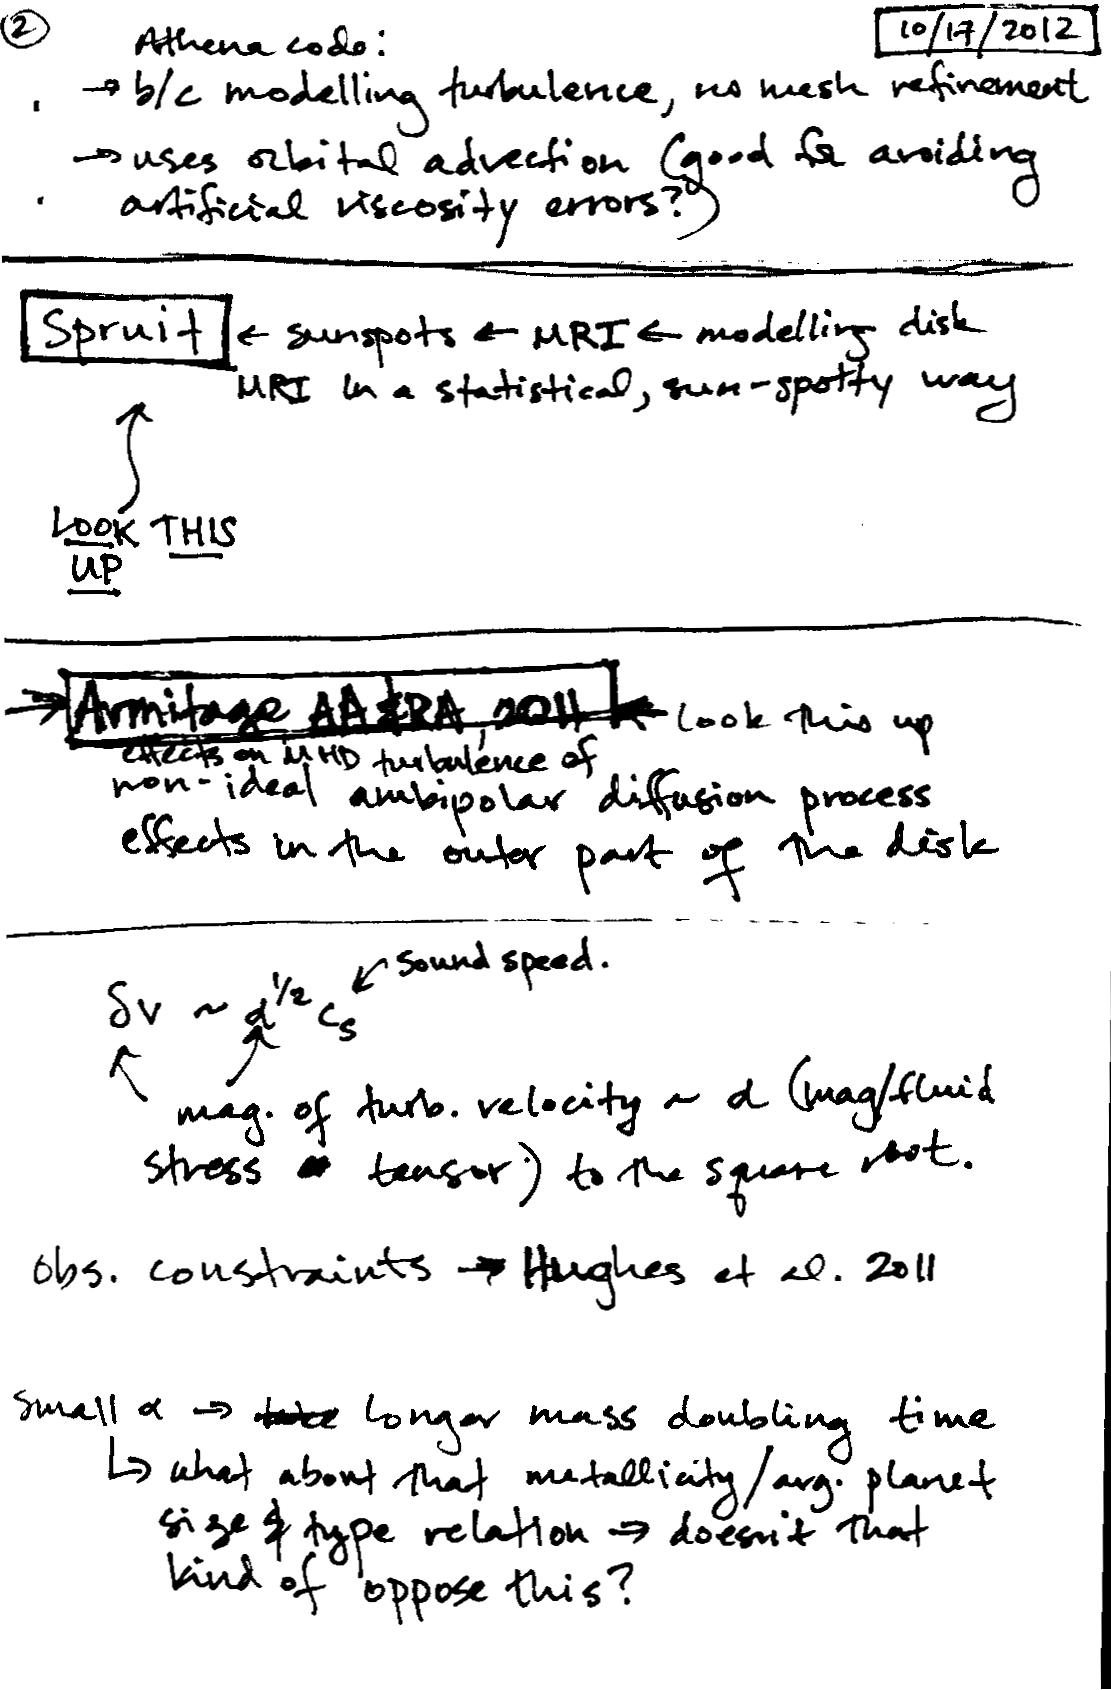 ② 10/17/2012
Athena code:
→ b/c modelling turbulence, no mesh refinement
→ uses orbital advection (good for avoiding
artificial viscosity errors?)
Spruit ← sunspots ← MRI ← modelling disk
MRI in a statistical, sun-spotty way
LOOK THIS
UP
→ Armitage AA&RA, 2011 ← look this up
effects on MHD turbulence of
non-ideal ambipolar diffusion process
effects in the outer part of the disk
sound speed.
δv ~ α^1/2 c_s
mag. of turb. velocity ~ α (mag/fluid
stress tensor) to the square root.
obs. constraints → Hughes et al. 2011
small α → longer mass doubling time
↳ what about that metallicity/avg. planet
size & type relation → doesn't that
kind of oppose this?